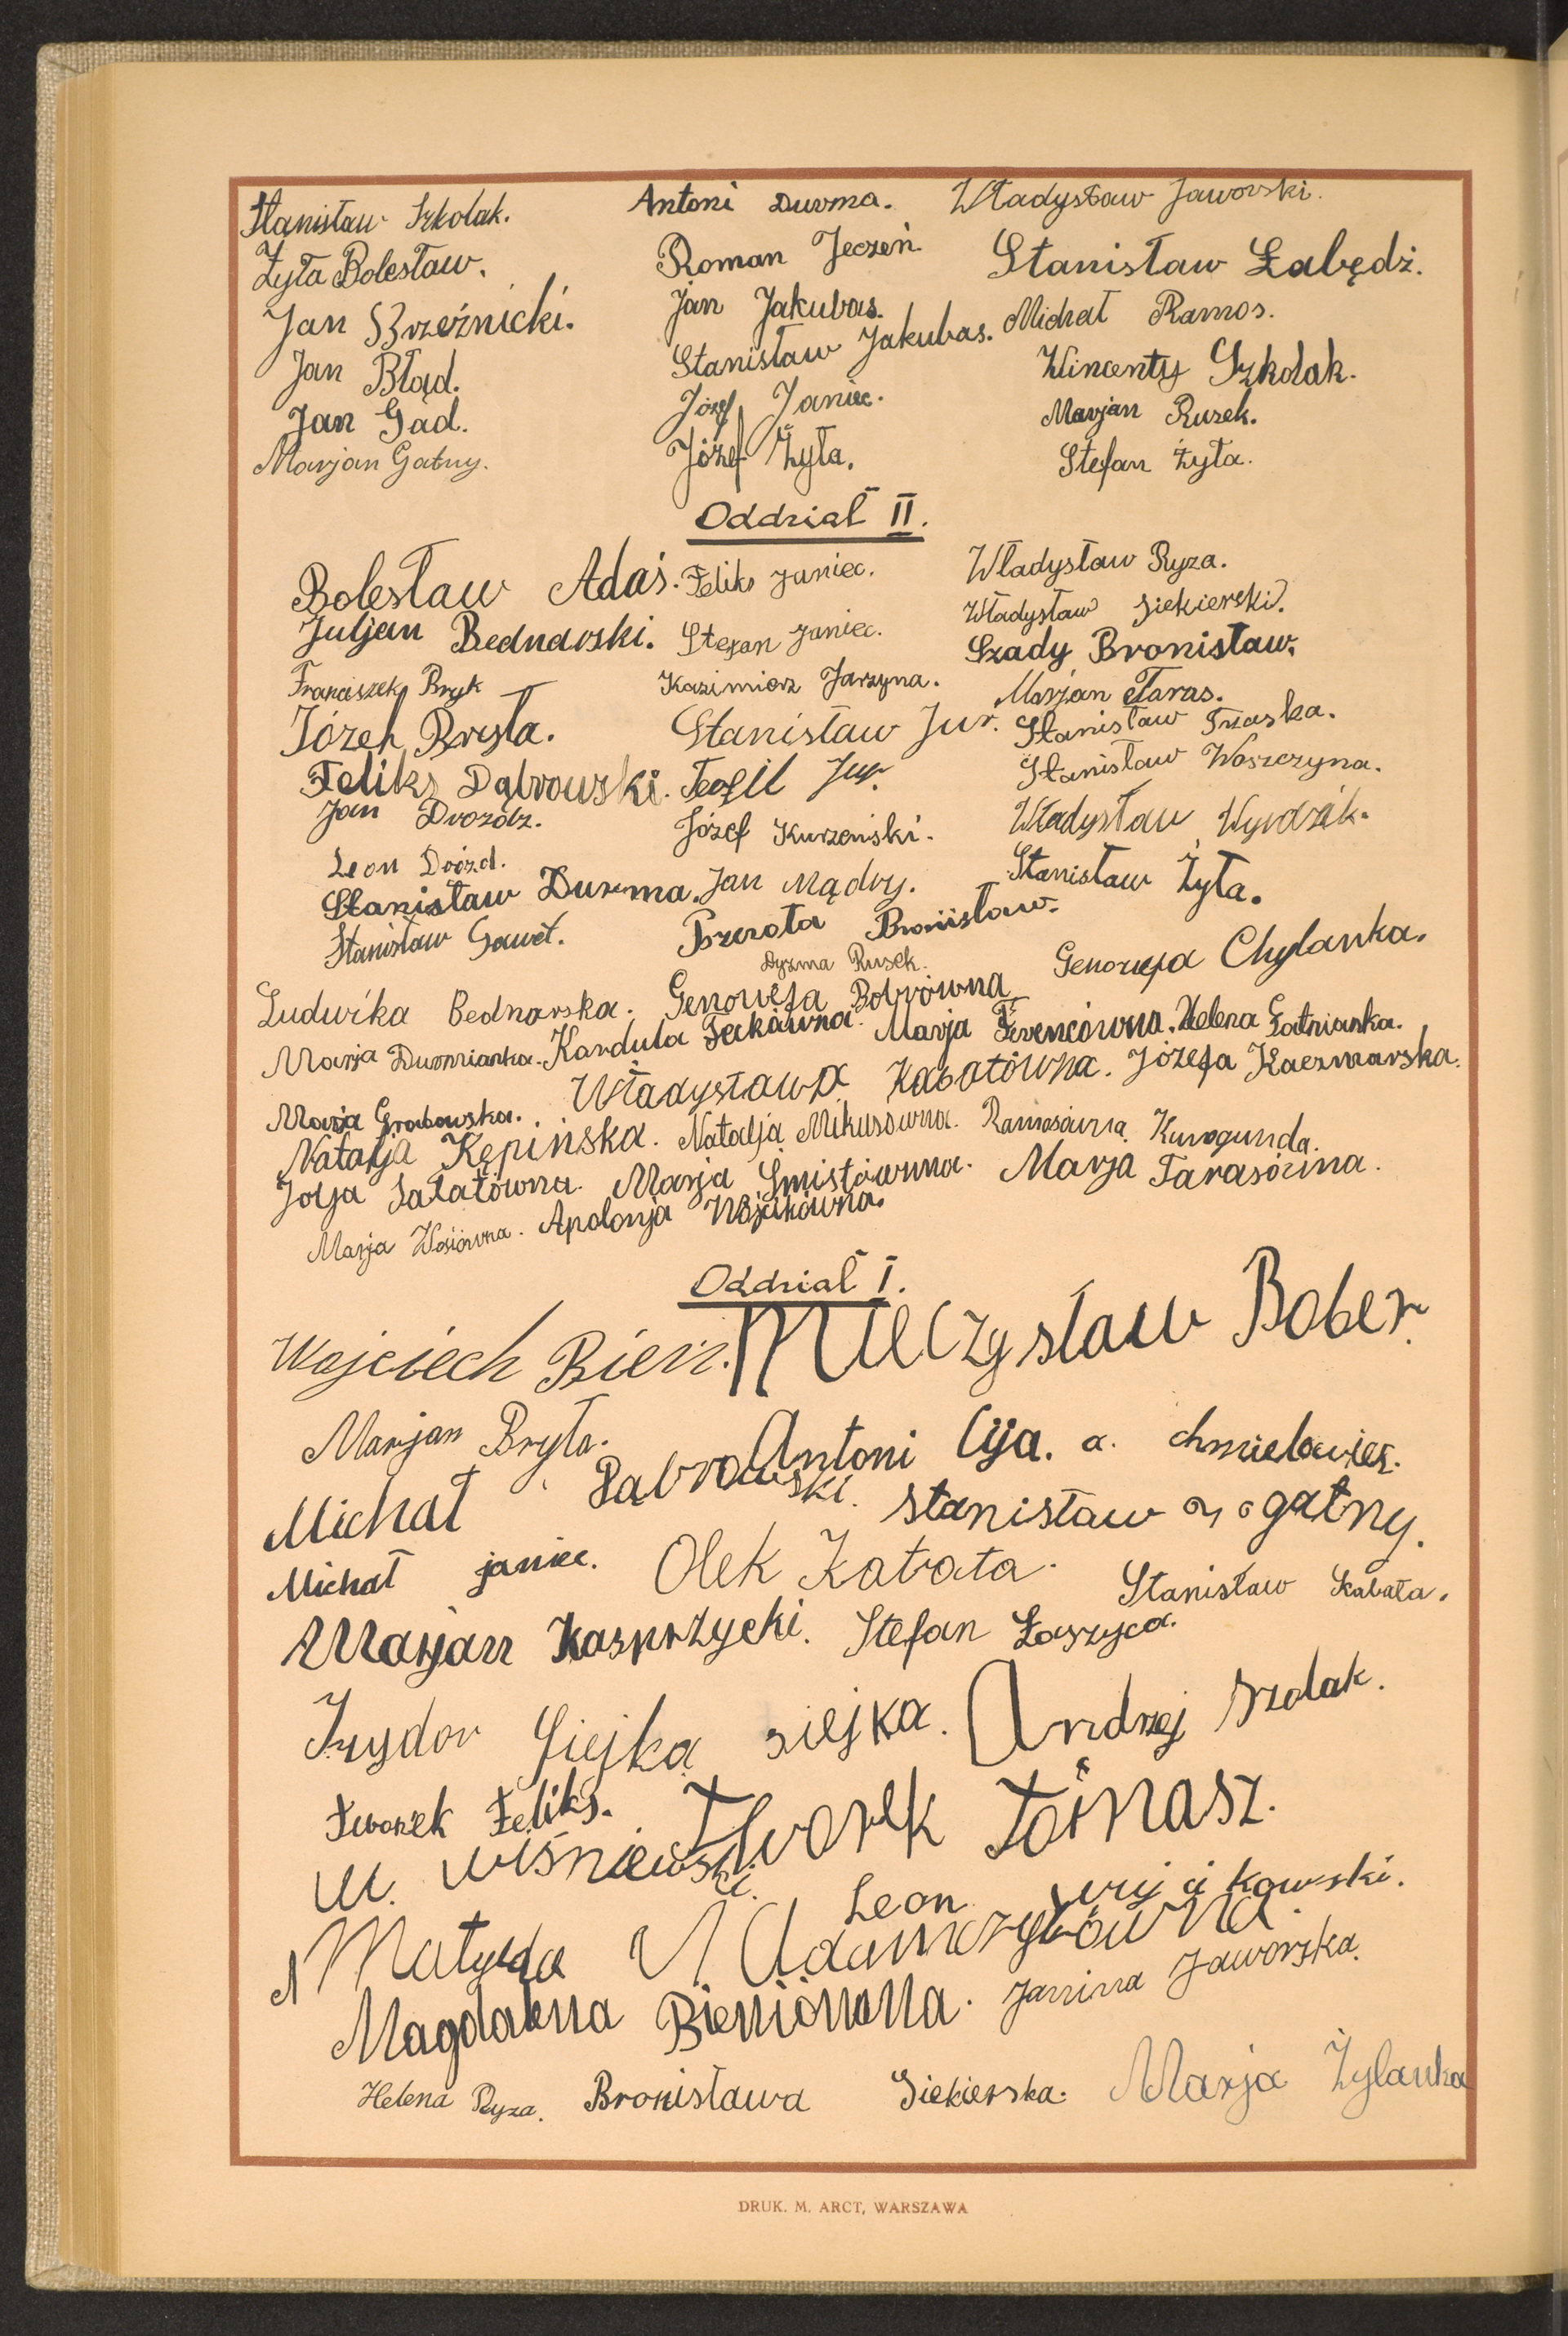 Stanisław Szkolak. Antoni Durma. Władysław Jaworski.
Żyła Bolesław. Roman Jeczeń Stanisław Łabędź.
Jan Brzeźnicki. Jan Jakubas. Michał Ramos.
Jan Błąd. Stanisław Jakubas. Wincenty Szkolak.
Jan Gad. Józef Janiec. Marjan Rusek.
Marjan Gatny. Józef Żyła. Stefan Żyła.
Oddział II.
Bolesław Adaś. Feliks Janiec. Władysław Ryza.
Juljan Bednarski. Stefan Janiec. Władysław Siekierski.
Franciszek Bryk Kazimierz Jarzyna. Szady Bronisław.
Józef Bryła. Stanisław Jur. Marjan Taras.
Feliks Dąbrowski. Teofil Jur. Stanisław Trzaska.
Jan Drozdz. Józef Kurzeński. Stanisław Waszczyna.
Leon Drózd. Jan Mądry. Władysław
Stanisław Durma. Bronisław. Stanisław Żyła.
Stanisław Gaweł. Dyzma Rusek.
Ludwika Bednarska. Genowefa Bobrówna Genowefa Chylanka.
Marja Durmianka. Marja Helena Gatnianka.
Marja Grabowska. Władysława Kabatówna. Józefa Kaczmarska.
Natalja Kępińska. Natalja Mikusówna. Ramosówna
Sałatówna. Marja Marja Tarasówna.
Marja Wosiówna. Apolonja Wójcikówna.
Oddział I.
Wojciech Bień. Mieczysław Bober.
Marjan Bryła. Antoni Cyja. a. chmielowiec.
Michał Dąbrowski. Stanisław gatny.
Michał janiec. Olek Kabata. Stanisław Kabała.
Marjan Kasprzycki. Stefan Łaszyca.
Izydor Siejka siejka. Andrzej
Tworek Feliks. Tworek Tomasz.
W. Wiśniewski. Leon
Matylda Adamczykówna.
Magdalena Bieniówna. Janina Jaworska.
Helena Ryza. Bronisława Siekierska. Marja Żylanka
DRUK. M. ARCT, WARSZAWA